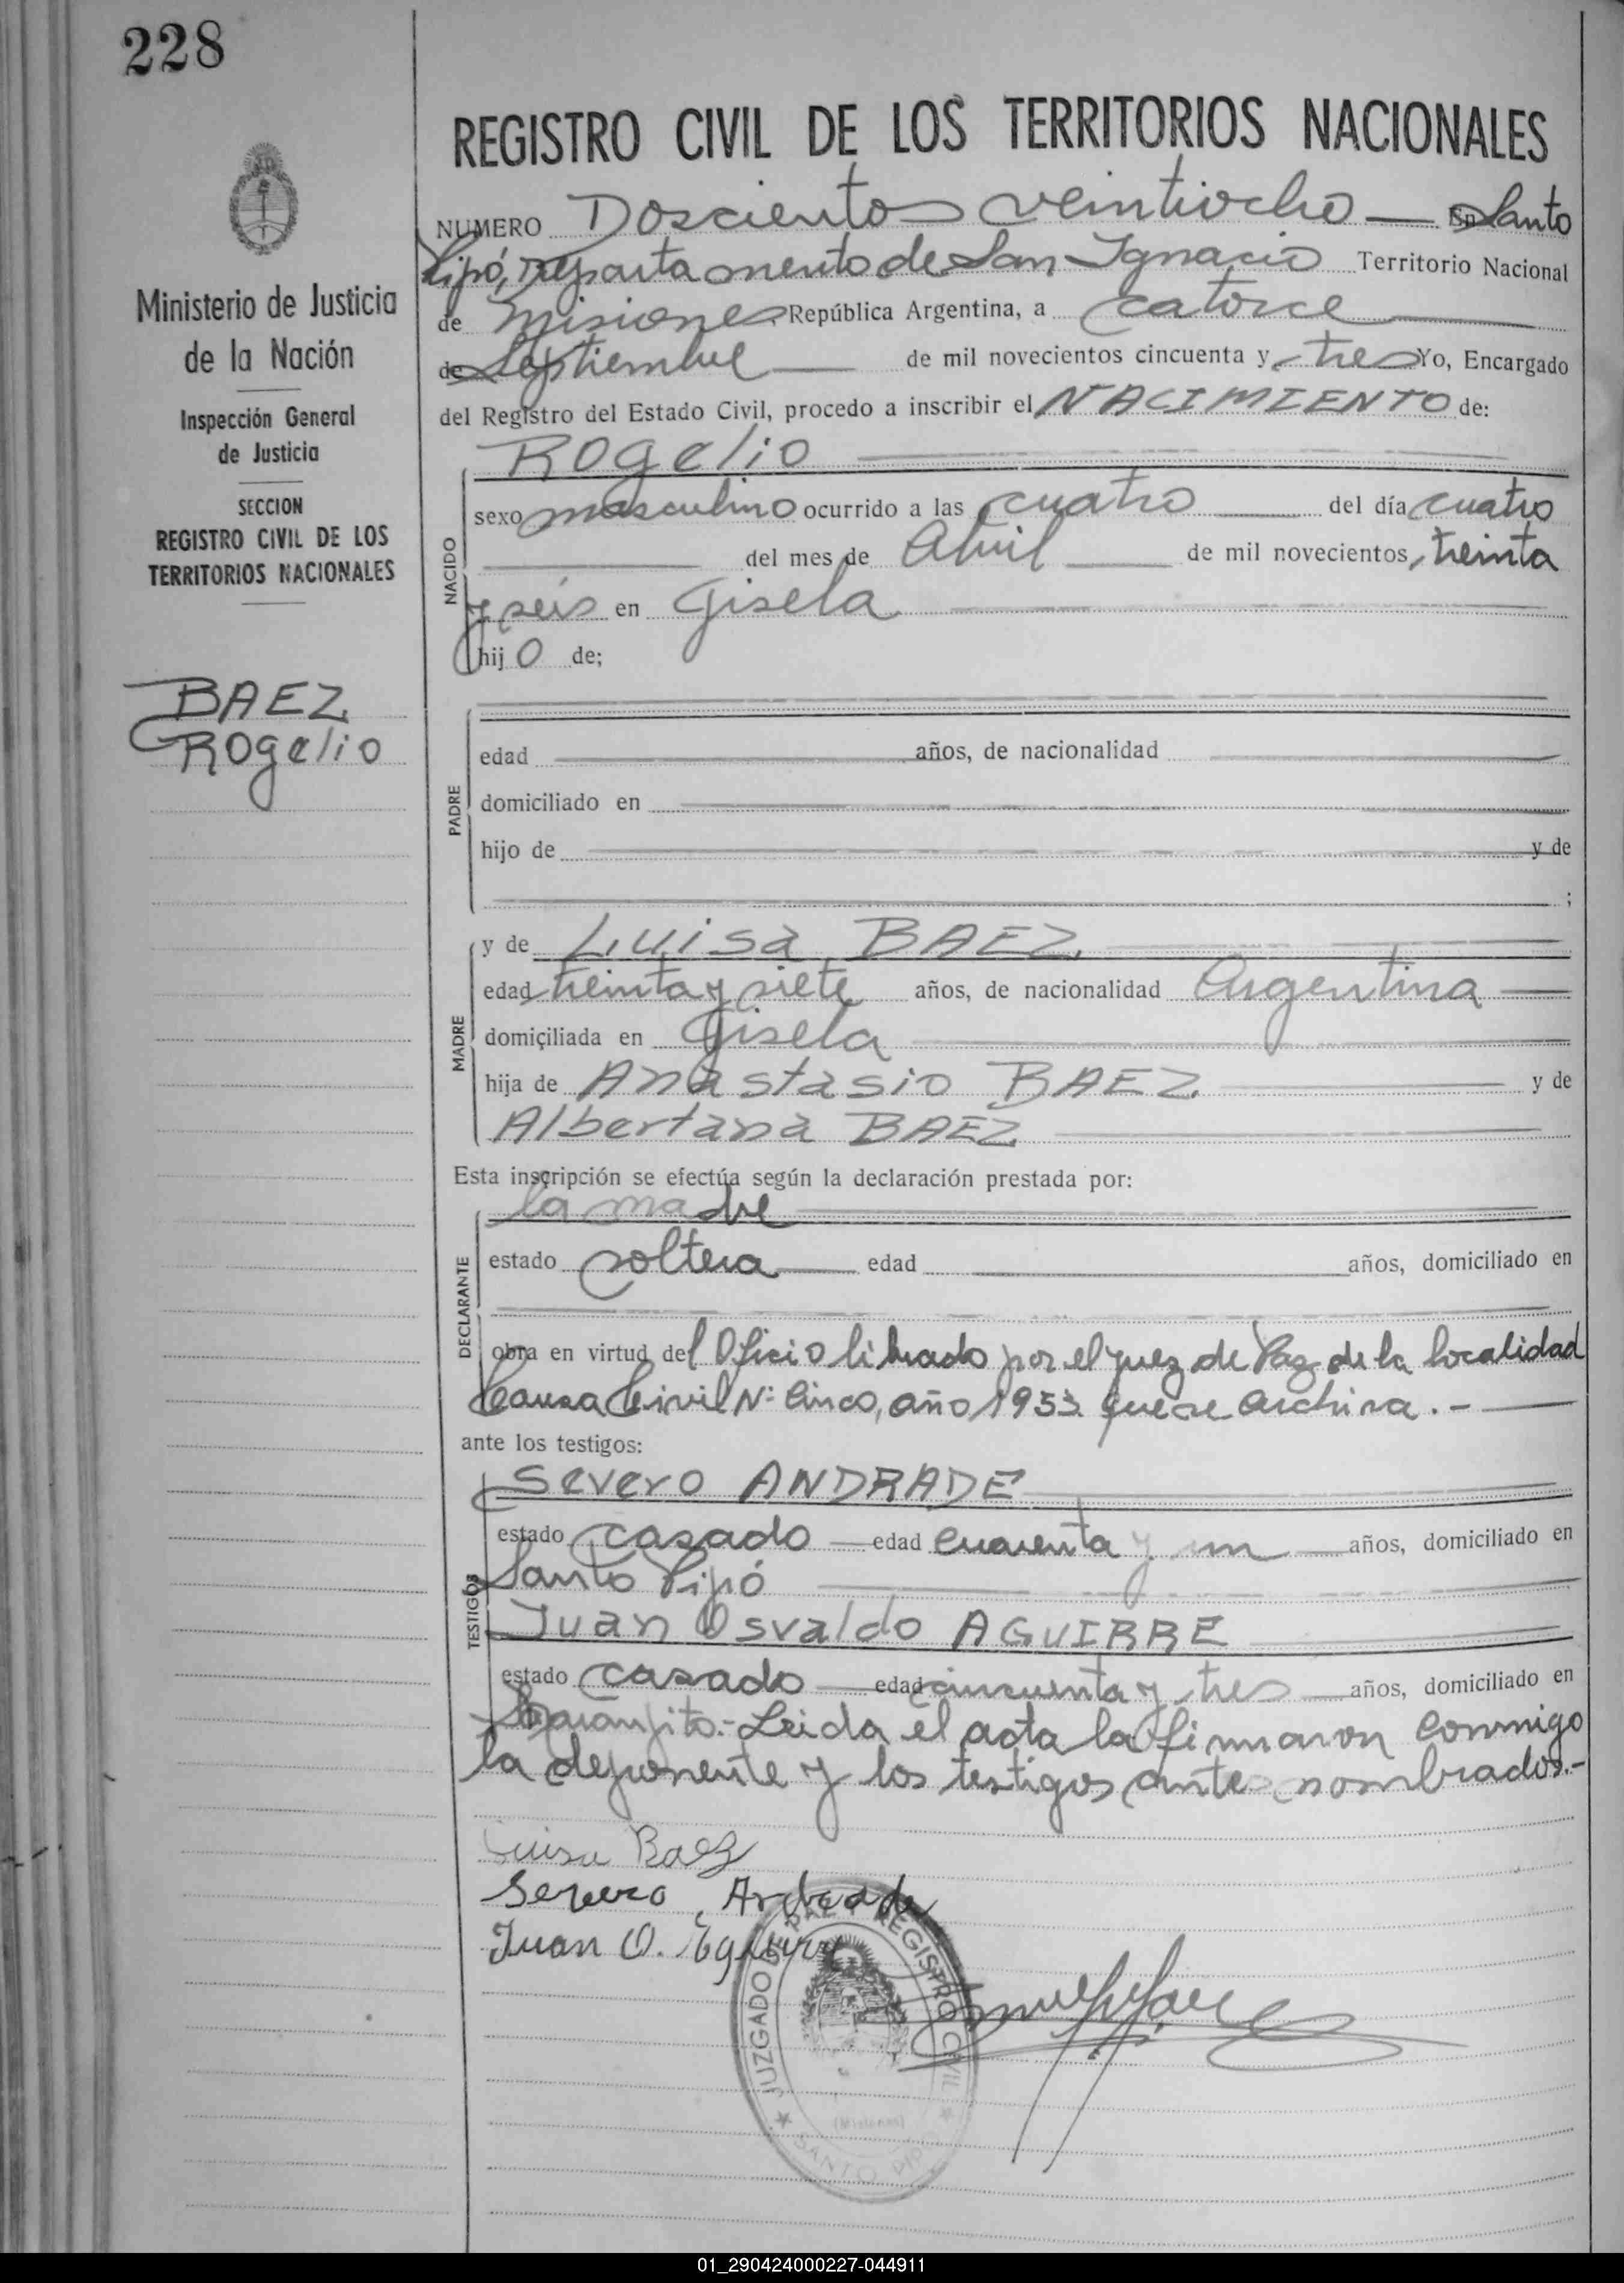 228
Ministerio de Justicia
de la Nación
Inspección General
de Justicia
SECCION
REGISTRO CIVIL DE LOS
TERRITORIOS NACIONALES
BAEZ
Rogelio
REGISTRO CIVIL DE LOS TERRITORIOS NACIONALES
NUMERO Doscientos veintiocho En Santo
Pipó, Departamento de San Ignacio Territorio Nacional
de Misiones República Argentina, a catorce
de Septiembre de mil novecientos cincuenta y tres Yo, Encargado
del Registro del Estado Civil, procedo a inscribir el NACIMIENTO de:
NACIDO
Rogelio
sexo masculino ocurrido a las cuatro del día cuatro
del mes de Abril de mil novecientos treinta
y seis en Gisela
hijo de;
PADRE
edad años, de nacionalidad
domiciliado en
hijo de y de
;
MADRE
y de Luisa BAEZ
edad treinta y siete años, de nacionalidad Argentina
domiciliada en Gisela
hija de Anastasio BAEZ y de
Albertana BAEZ
Esta inscripción se efectúa según la declaración prestada por:
DECLARANTE
la madre
estado soltera edad años, domiciliado en
obra en virtud del Oficio librado por el juez de Paz de la localidad
Causa Civil Nº Cinco, año 1953 que se archiva.-
ante los testigos:
TESTIGOS
Severo ANDRADE
estado casado edad cuarenta y un años, domiciliado en
Santo Pipó
Juan Osvaldo AGUIRRE
estado casado edad cincuenta y tres años, domiciliado en
Naranjito.- Leida el acta la firmaron conmigo
la deponente y los testigos antes nombrados.-
Luisa Baez
Severo Andrade
Juan O. Aguirre
JUZGADO DE PAZ Y REGISTRO CIVIL
(Misiones)
SANTO PIPO
01_290424000227-044911